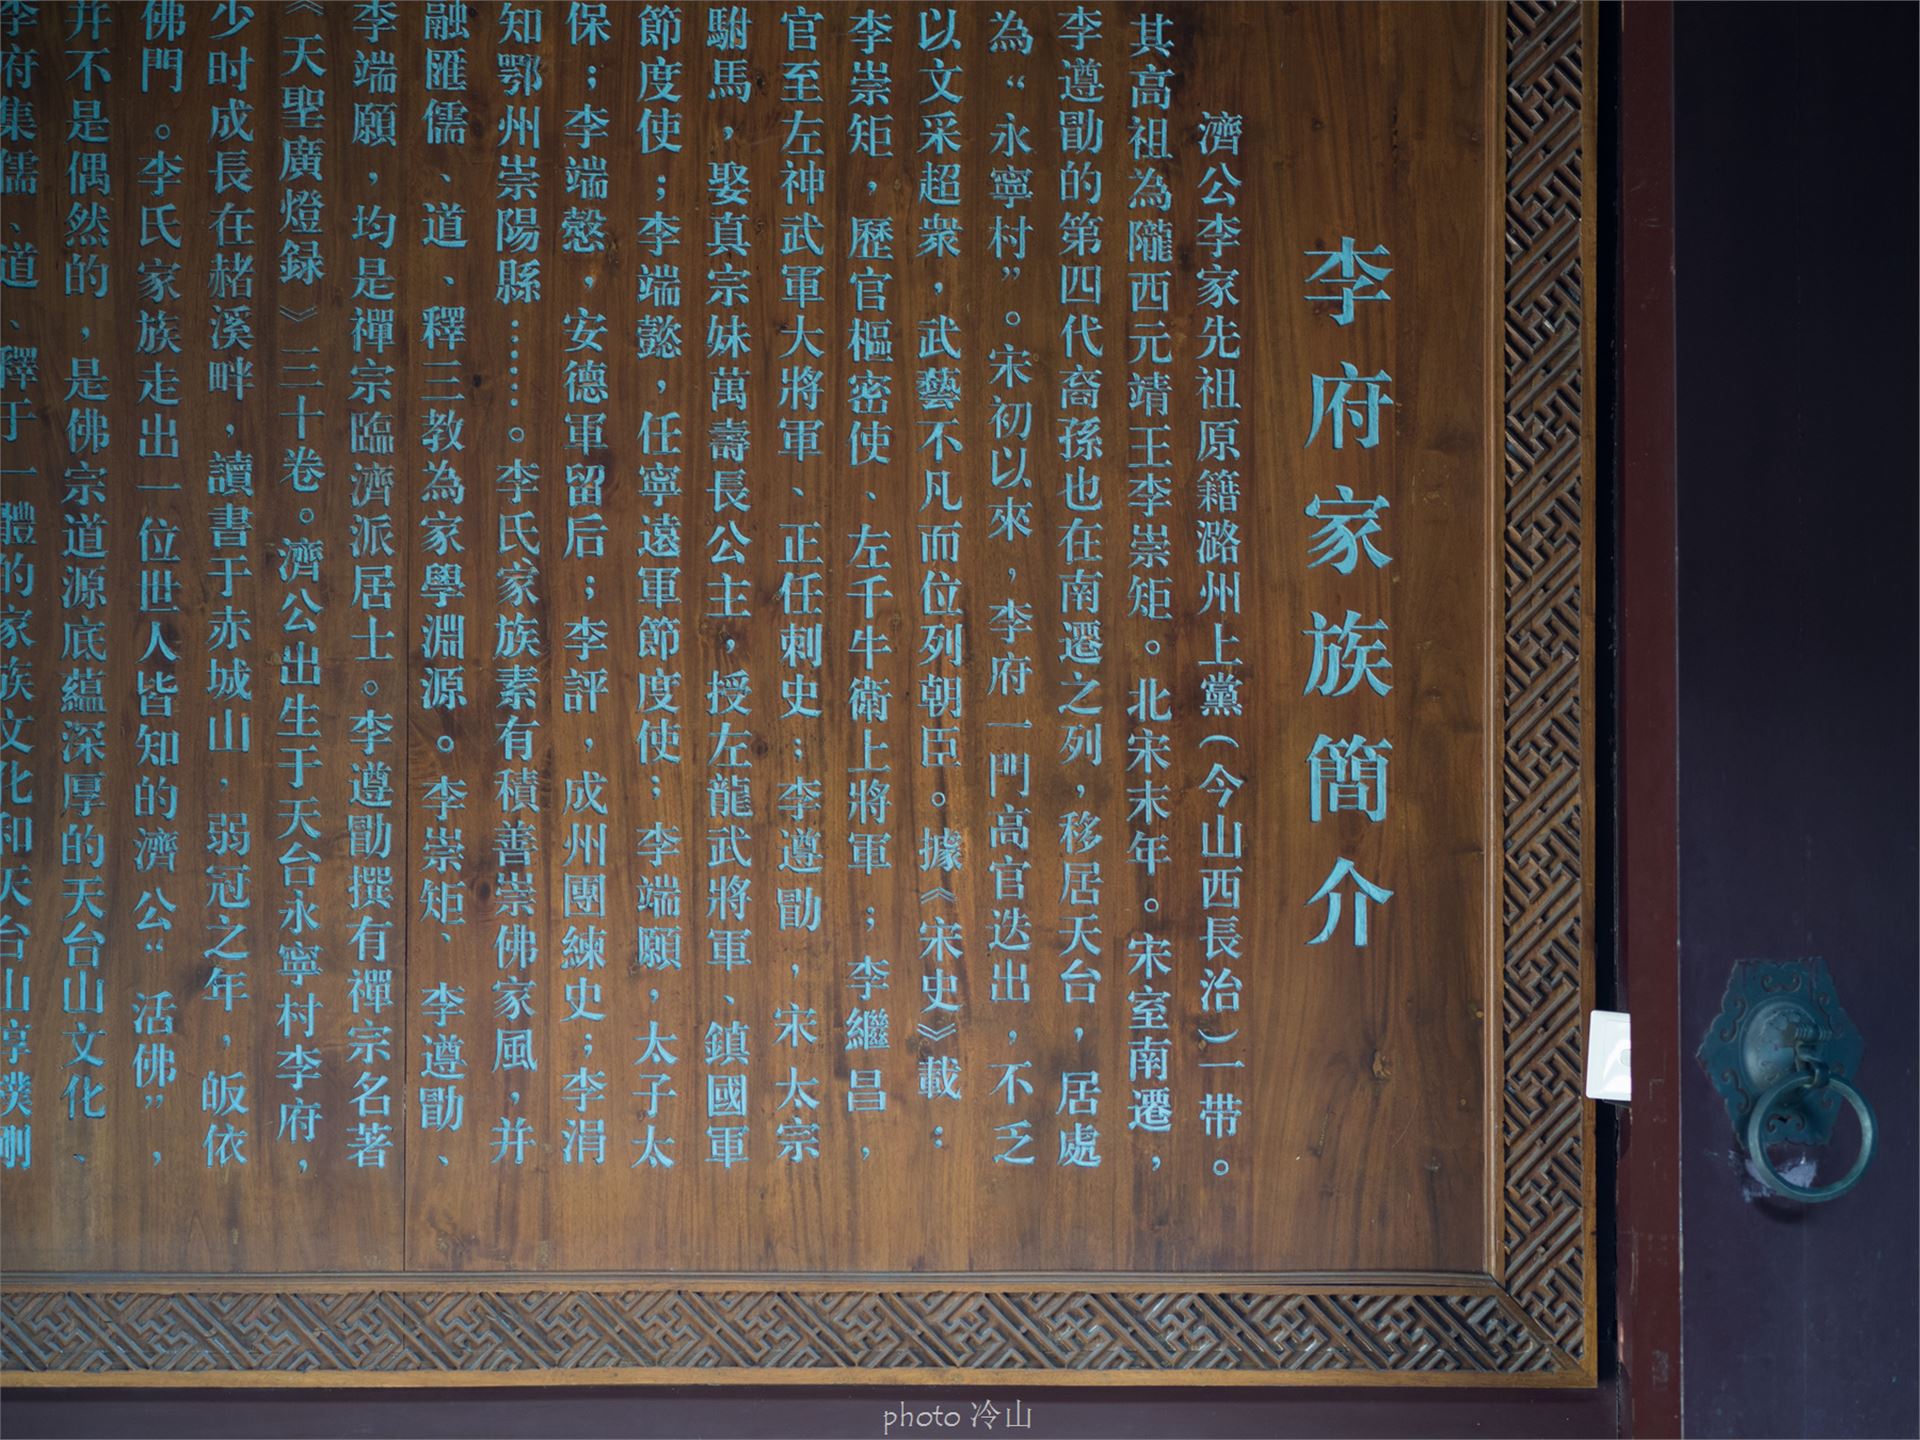 李府家族簡介
濟公李家先祖原籍潞州上黨（今山西長治）一带。
其高祖為隴西元靖王李崇矩。北宋末年。宋室南遷，
李遵勖的第四代裔孫也在南遷之列，移居天台，居處
為“永寧村”。宋初以來，李府一門高官迭出，不乏
以文采超衆，武藝不凡而位列朝臣。據《宋史》載：
李崇矩，歷官樞密使、左千牛衛上將軍；李繼昌，
官至左神武軍大將軍、正任刺史；李遵勖，宋太宗
駙馬，娶真宗妹萬壽長公主，授左龍武將軍、鎮國軍
節度使；李端懿，任寧遠軍節度使；李端願，太子太
保；李端愨，安德軍留后；李評，成州團練史；李涓
知鄂州崇陽縣……。李氏家族素有積善崇佛家風，并
融匯儒、道、釋三教為家學淵源。李崇矩、李遵勖、
李端願，均是禪宗臨濟派居士。李遵勖撰有禪宗名著
《天聖廣燈録》三十卷。濟公出生于天台永寧村李府，
少时成長在赭溪畔，讀書于赤城山，弱冠之年，皈依
佛門。李氏家族走出一位世人皆知的濟公“活佛”，
并不是偶然的，是佛宗道源底蘊深厚的天台山文化、
李府集儒、道、釋于一體的家族文化和天台山享
photo 冷山